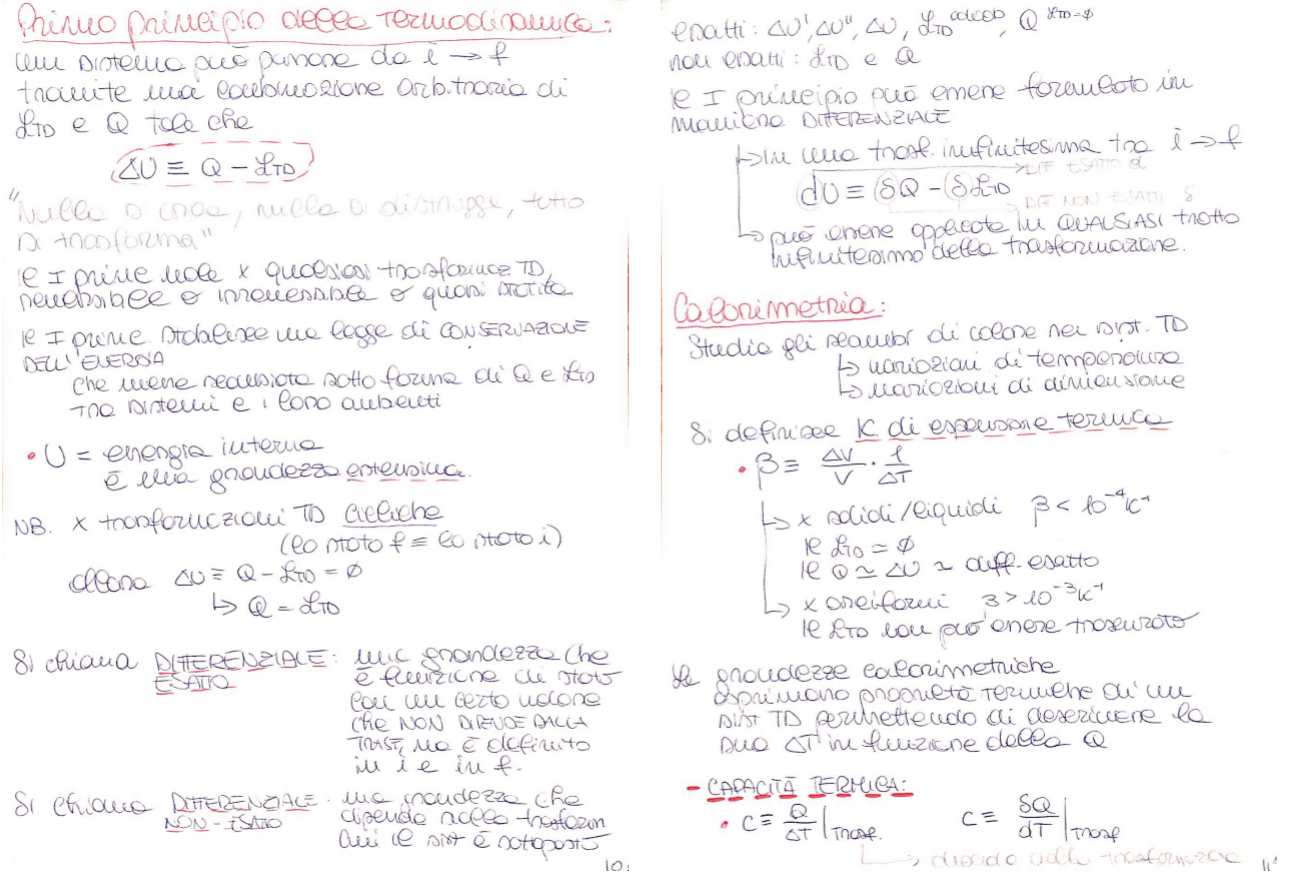 Primo principio della Termodinamica:
un sistema può passare da i → f
tramite una combinazione arbitraria di
ℒTD e Q tale che
ΔU ≡ Q - ℒTD
"Nulla si crea, nulla si distrugge, tutto
si trasforma"
il I princ vale x qualsiasi trasformaz TD,
reversibile o irreversibile o quasi statica
il I princ. stabilisce una legge di CONSERVAZIONE
DELL'ENERGIA
che viene scambiata sotto forma di Q e ℒTD
tra sistemi e i loro ambienti
• U = energia interna
è una grandezza estensiva.
NB. x trasformazioni TD cicliche
(lo stato f ≡ lo stato i)
allora ΔU ≡ Q - ℒTD = ∅
↳ Q = ℒTD
Si chiama DIFFERENZIALE ESATTO: una grandezza che
è funzione di stato
con un certo valore
che NON DIPENDE DALLA
TRASF, ma è definito
in i e in f.
Si chiama DIFFERENZIALE NON-ESATTO: una grandezza che
dipende dalla trasform
cui il sist è sottoposto
10.
esatti: ΔU', ΔU'', ΔU, ℒTD^adiab, Q^ℒTD=∅
non esatti: ℒTD e Q
il I principio può essere formulato in
maniera DIFFERENZIALE
↳ in una trasf. infinitesima tra i → f
→ DIF ESATTO d
dU ≡ δQ - δℒTD
DIF NON ESATTI δ
↳ può essere applicato in QUALSIASI tratto
infinitesimo della trasformazione.
Calorimetria:
Studia gli scambi di calore nei sist. TD
↳ variazioni di temperatura
↳ variazioni di dimensione
Si definisce K. di espansione termica
• β ≡ ΔV/V · 1/ΔT
↳ x solidi/liquidi β < 10⁻⁴K⁻¹
il ℒTD = ∅
il Q ≃ ΔU ≃ diff. esatto
↳ x aeriformi β > 10⁻³K⁻¹
il ℒTD non può essere trascurato
Le grandezze calorimetriche
esprimono proprietà termiche di un
sist TD permettendo di descrivere la
sua ΔT in funzione della Q
- CAPACITÀ TERMICA:
• C ≡ Q/ΔT |trasf. C ≡ δQ/dT |trasf
↳ dipende dalla trasformazione
11